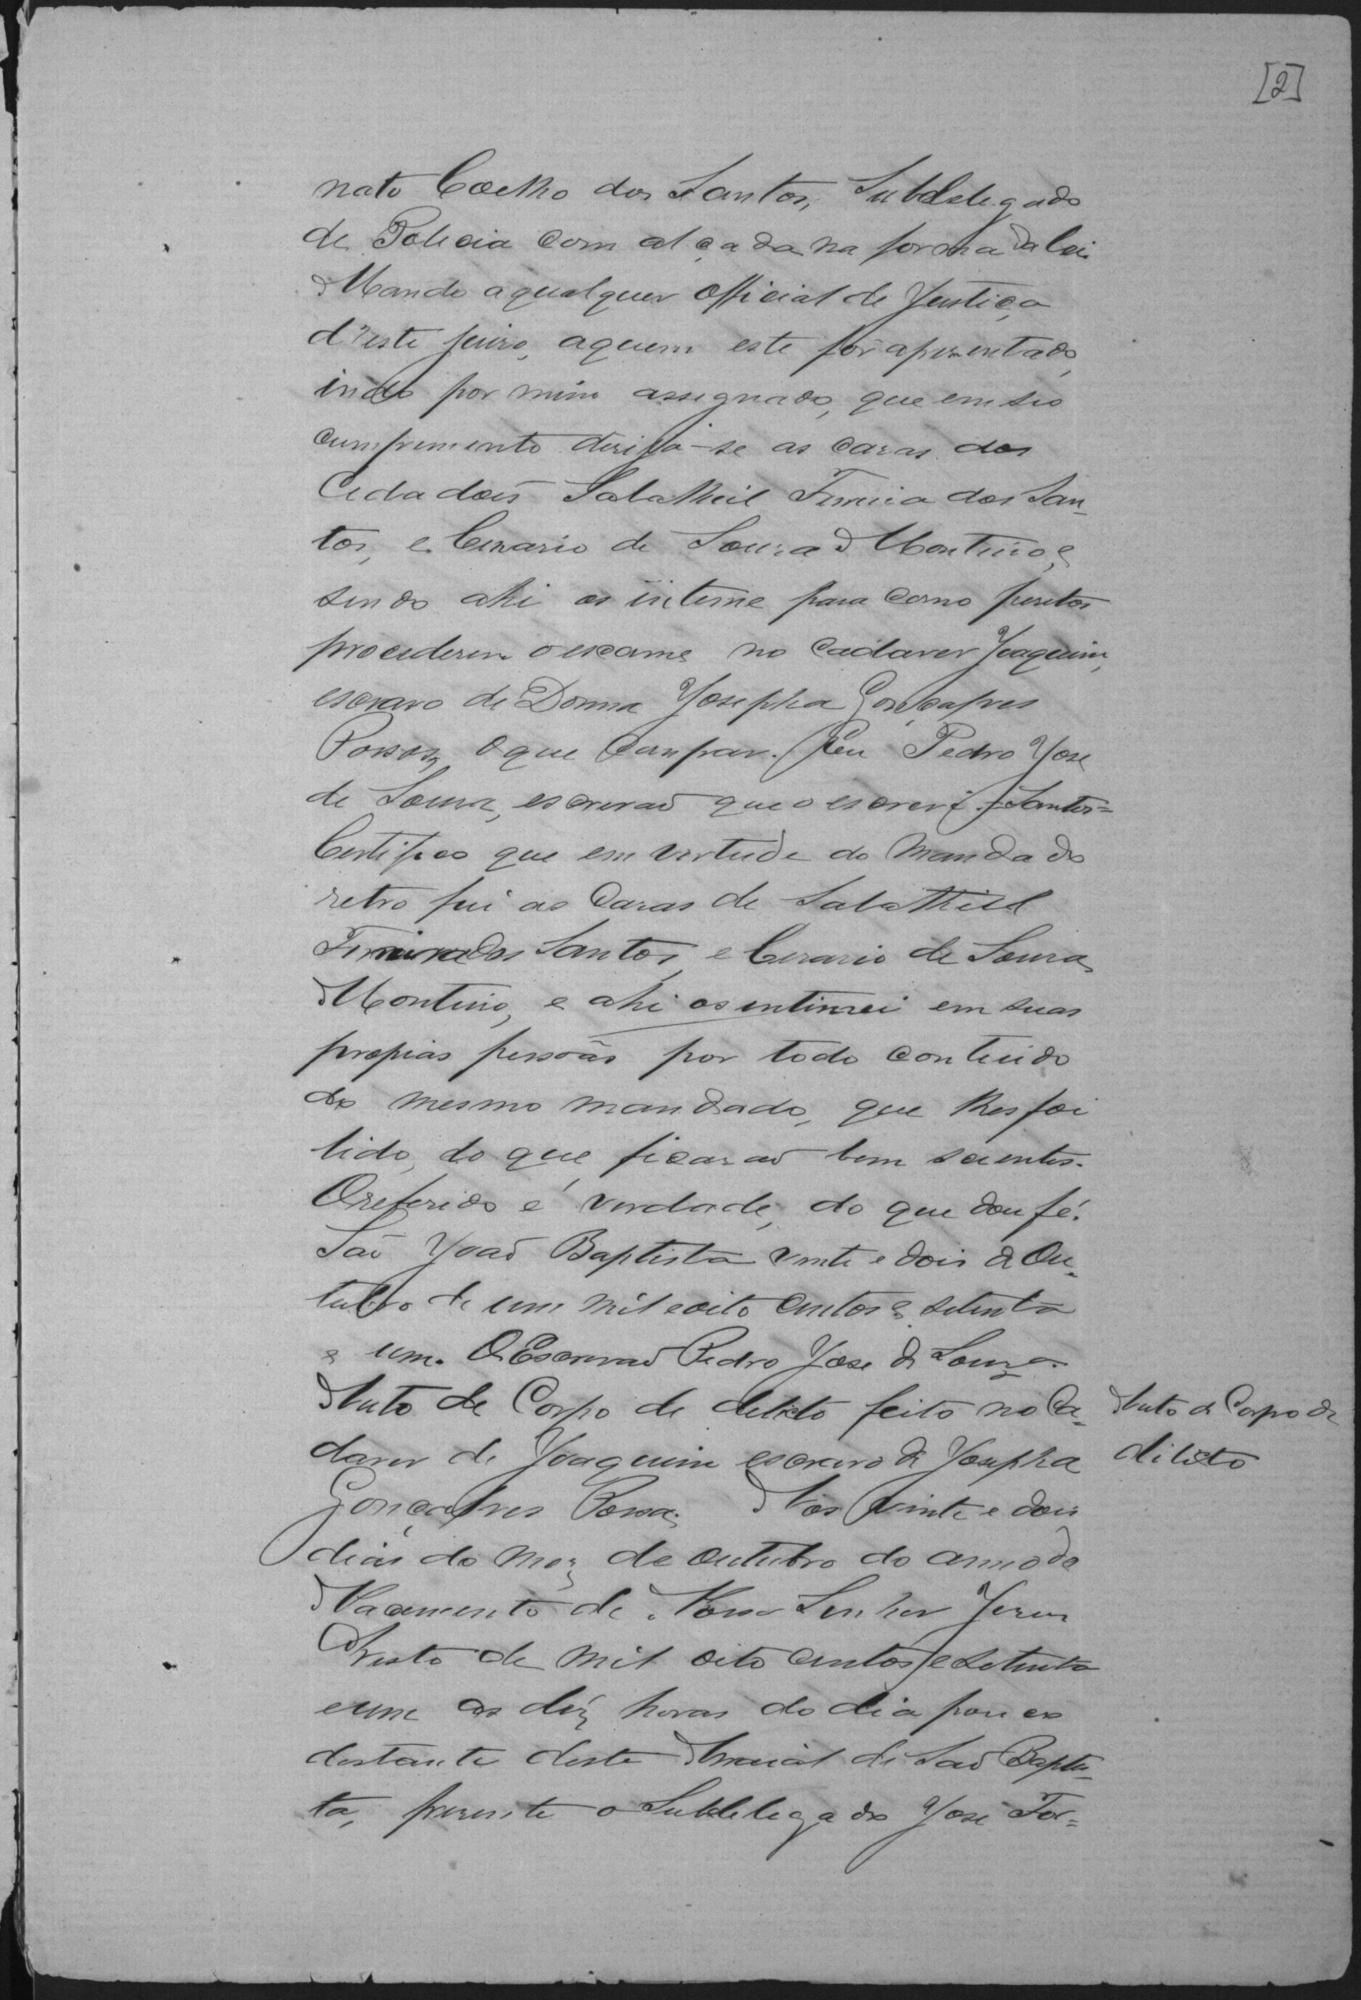 [2]
nato Coelho dos Santos, Subdelegado
de Policia com alçada na forma da lei
Mando a qualquer official de Justiça
d'este juizo, aquem este for apresentado,
indo por mim assignado, que em seo
cumprimento derija-se as cazas dos
Cidadoẽs Salathiel Ferreira dos San-
tos, e Cezario de Souza Monteiro, e
sendo ahi os intime para como peritos
procederem o exame no cadaver Joaquim,
escravo de Donna Josepha Gonçalves
Passos, o que cumpra. Eu Pedro Jose
de Souza, escrivaõ que o escrevi. Santos=
Certifico que em vertude do mandado
retro fui as Cazas de Salathiel
Ferreira dos Santos, e Cezario de Souza
Monteiro, e ahi os intimei em suas
propias pessoãs por todo conteúdo
do mesmo mandado, que lhes foi
lido, do que ficaraõ bem scientes.
O referido é verdade, do que dou fé.
Saõ Joaõ Baptista vinte e dois de Ou-
tubro de um mil e oito centos e setenta
e um. O Escrivaõ Pedro Jose de Souza.
Auto de Corpo de delicto feito no Ca-
daver de Joaquim escravo de Josepha
Gonçalves Aos vinte e dois
dias do mez de Outubro do anno do
Nacimento de Nosso Senhor Jezus
Christo de mil oito centos e setenta
e um as déz horas do dia pouco
destante deste Arraial de Saõ Baptis-
ta, prezente o Subdelegado José For-
Auto de Corpo de
delicto